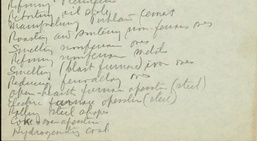 Refining
Retorting oil shale
Manufacturing Portland Cement
Roasting and sintering non-ferrous ores
Smelting nonferrous ores
Refining nonferrous metals
Smelting (blast furnace) iron ores
Reducing ferro alloy ores
Open-hearth furnace operation (steel)
Electric furnace operation (steel)
Rolling steel shapes
Coke oven operation
Hydrogenating coal